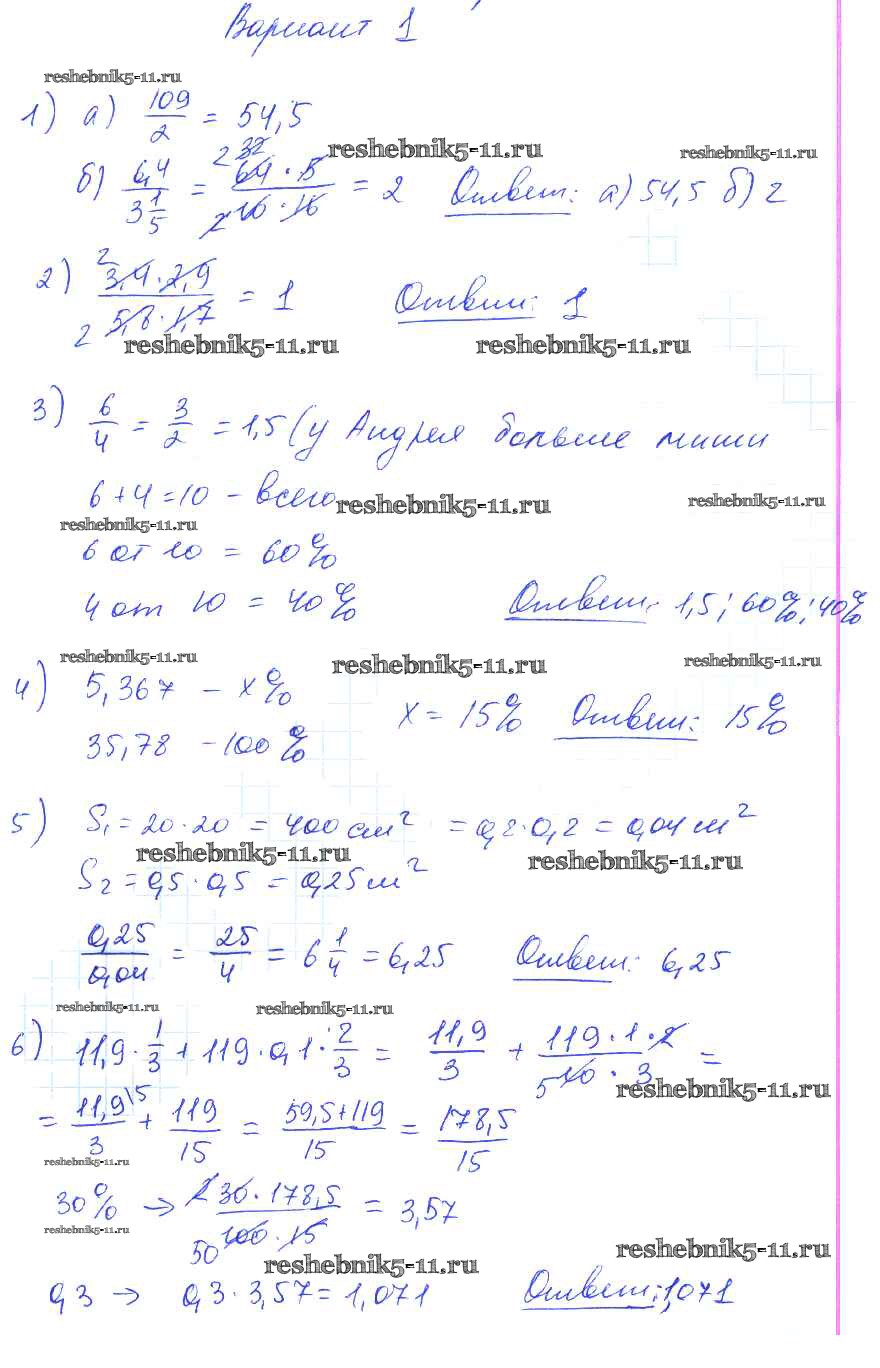 Вариант 1
reshebnik5-11.ru
1) а) 109/2 = 54,5
reshebnik5-11.ru reshebnik5-11.ru
б) 6,4/3 1/5 = 64·5/10·16 = 2 Ответ: а) 54,5 б) 2
2) 3,4·2,9/5,8·1,7 = 1 Ответ: 1
reshebnik5-11.ru reshebnik5-11.ru
3) 6/4 = 3/2 = 1,5 (у Андрея больше миши
6+4=10 - всего
reshebnik5-11.ru reshebnik5-11.ru
reshebnik5-11.ru
6 от 10 = 60%
4 от 10 = 40% Ответ: 1,5; 60%; 40%
reshebnik5-11.ru reshebnik5-11.ru reshebnik5-11.ru
4) 5,367 - x%
35,78 - 100% x = 15% Ответ: 15%
5) S₁ = 20·20 = 400 см² = 0,2·0,2 = 0,04 м²
reshebnik5-11.ru reshebnik5-11.ru
S₂ = 0,5·0,5 = 0,25 м²
0,25/0,04 = 25/4 = 6 1/4 = 6,25 Ответ: 6,25
reshebnik5-11.ru reshebnik5-11.ru
6) 11,9·1/3 + 119·0,1·2/3 = 11,9/3 + 119·1·2/10·3 =
reshebnik5-11.ru
= 11,9\5/3 + 119/15 = 59,5+119/15 = 178,5/15
reshebnik5-11.ru
30% → 30·178,5/100·15 = 3,57
reshebnik5-11.ru
reshebnik5-11.ru reshebnik5-11.ru
0,3 → 0,3·3,57 = 1,071 Ответ: 1,071